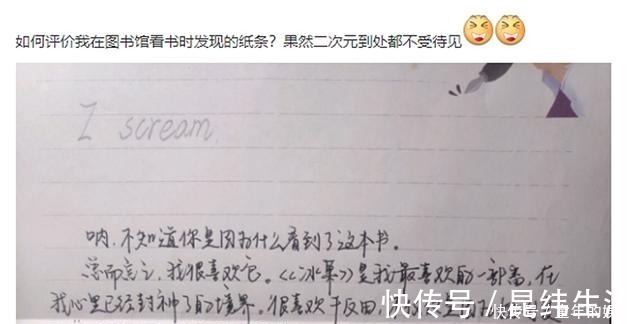 如何评价我在图书馆看书时发现的纸条？果然二次元到处都不受待见
I scream
呐，不知道你是因为什么看到了这本书。
总而言之，我很喜欢它。《冰菓》是我最喜欢的一部番，在
我心里已经封神了的境界。很喜欢千反田，
快传号／星纬生活
快传号／童年的